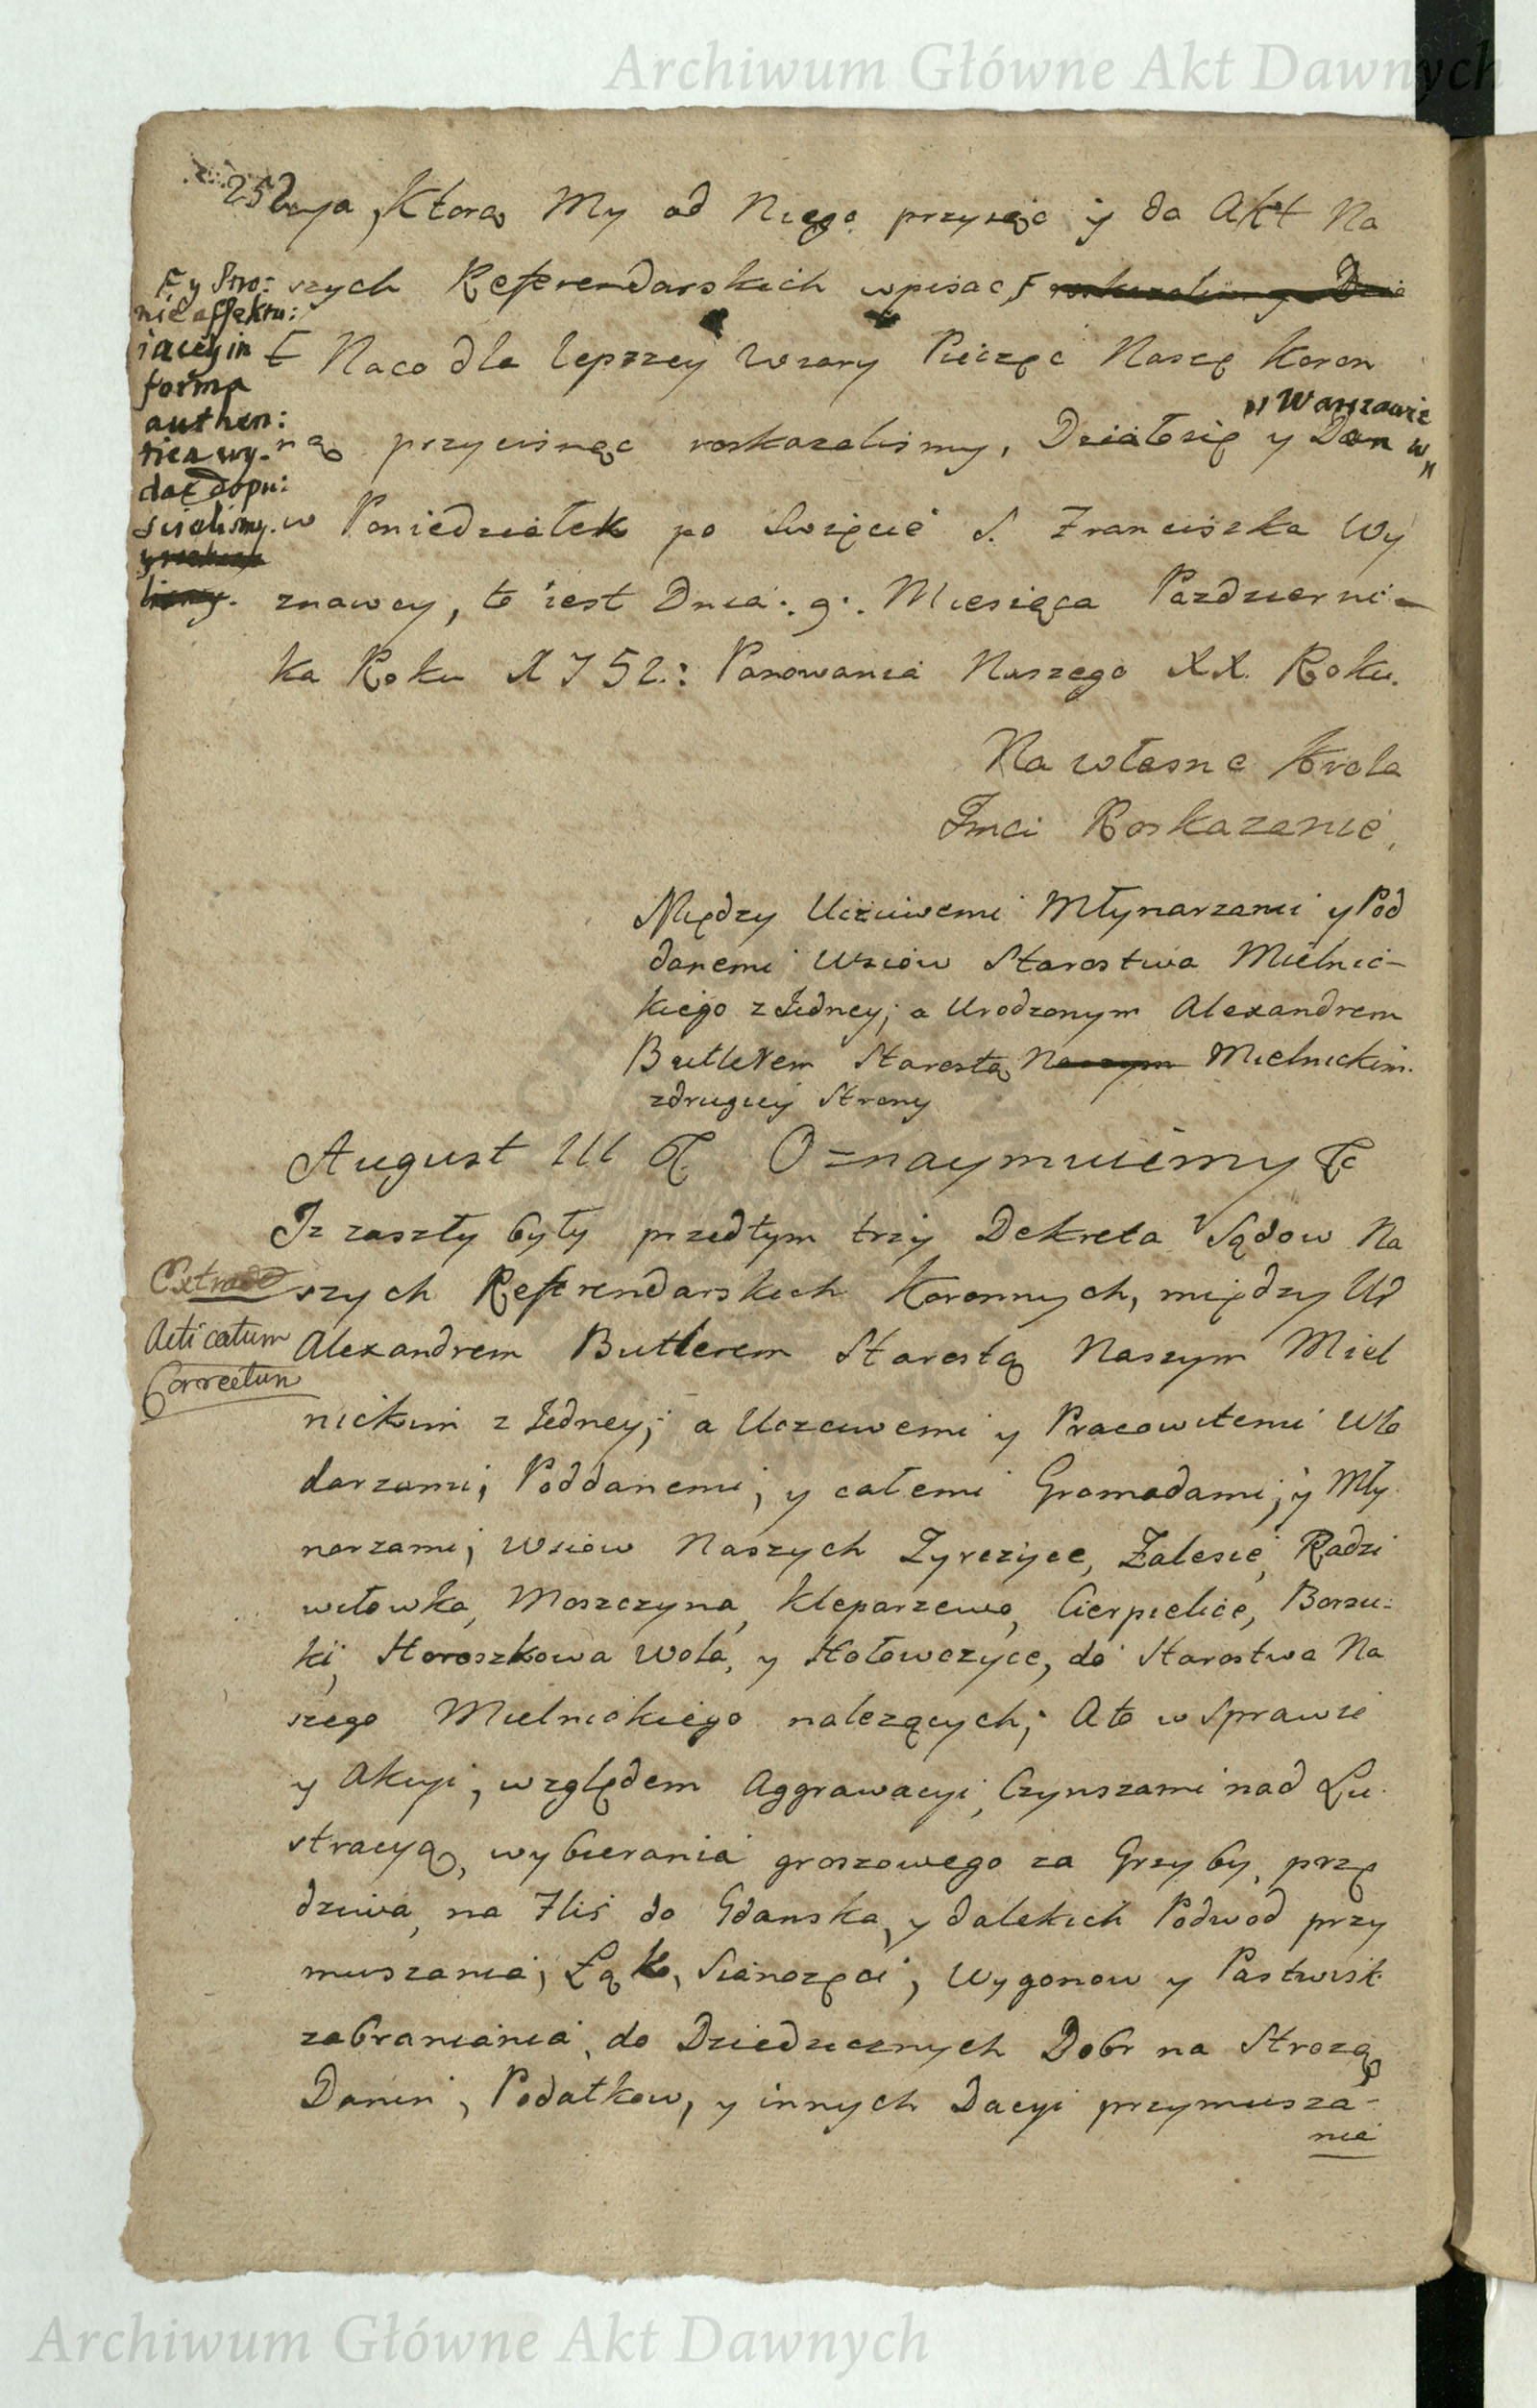 Archiwum Główne Akt Dawnych
252
cya, Ktorą My od Niego przyiąc y do Akt Na
szych Refferendarskich wpisac, F
F y Stro:
nie affektu:
iącey in
forma
authen:
tica wy-
dać dopu:
scielismy.
Na co dla lepszey Wiary Pieczęć Naszę Koron
ną przycisnąc roskazalismy, Działo się y Dan w
w Warszawie
w Poniedziałek po Swięcie S. Franciszka Wy
znawcy, to iest Dnia :9: Miesiąca Pazdzierni-
ka Roku 1752: Panowania Naszego XX. Roku.
Na własne Krola
Jmci Roskazanie,
Między Uczciwemi Młynarzami y Pod
danemi Wsiow Starostwa Mielnic-
kiego z Jedney; a Urodzonym Alexandrem
Butlerem Starostą Naszym Mielnickim.
z drugiey Strony
August III &c Oznaymuiemy &c
Iz zaszły były przedtym trzy Dekreta Sądow Na
szych Refferendarskich Koronnych, między Ur
Extrade
Acticatum
Correctum
Alexandrem Butlerem Starostą Naszym Miel
nickim z Jedney; a Uczciwemi y Pracowitemi Wło
darzami, Poddanemi, y całemi Gromadami, y Mły
narzami, Wsiow Naszych Zyrczyce, Zalesie, Radzi
wiłowka, Moszczyna, Kleparzewo, Cierpielice, Borsu:
ki, Horoszkowa Wola, y Hołowczyce, do Starostwa Na
szego Mielnickiego nalezących; A to w Sprawie
y Akcyi, względem Aggrawacyi, Czynszami nad Lu
stracyą, wybierania groszowego za Grzyby, przę
dziwa, na Flis do Gdanska, y dalekich Podwod przy
muszania, Łąk, Sianozęci, Wygonow y Pastwisk
zabraniania, do Dziedzicznych Dobr na Strozą
Danin, Podatkow, y innych Dacyi przymusza-
nia
Archiwum Główne Akt Dawnych